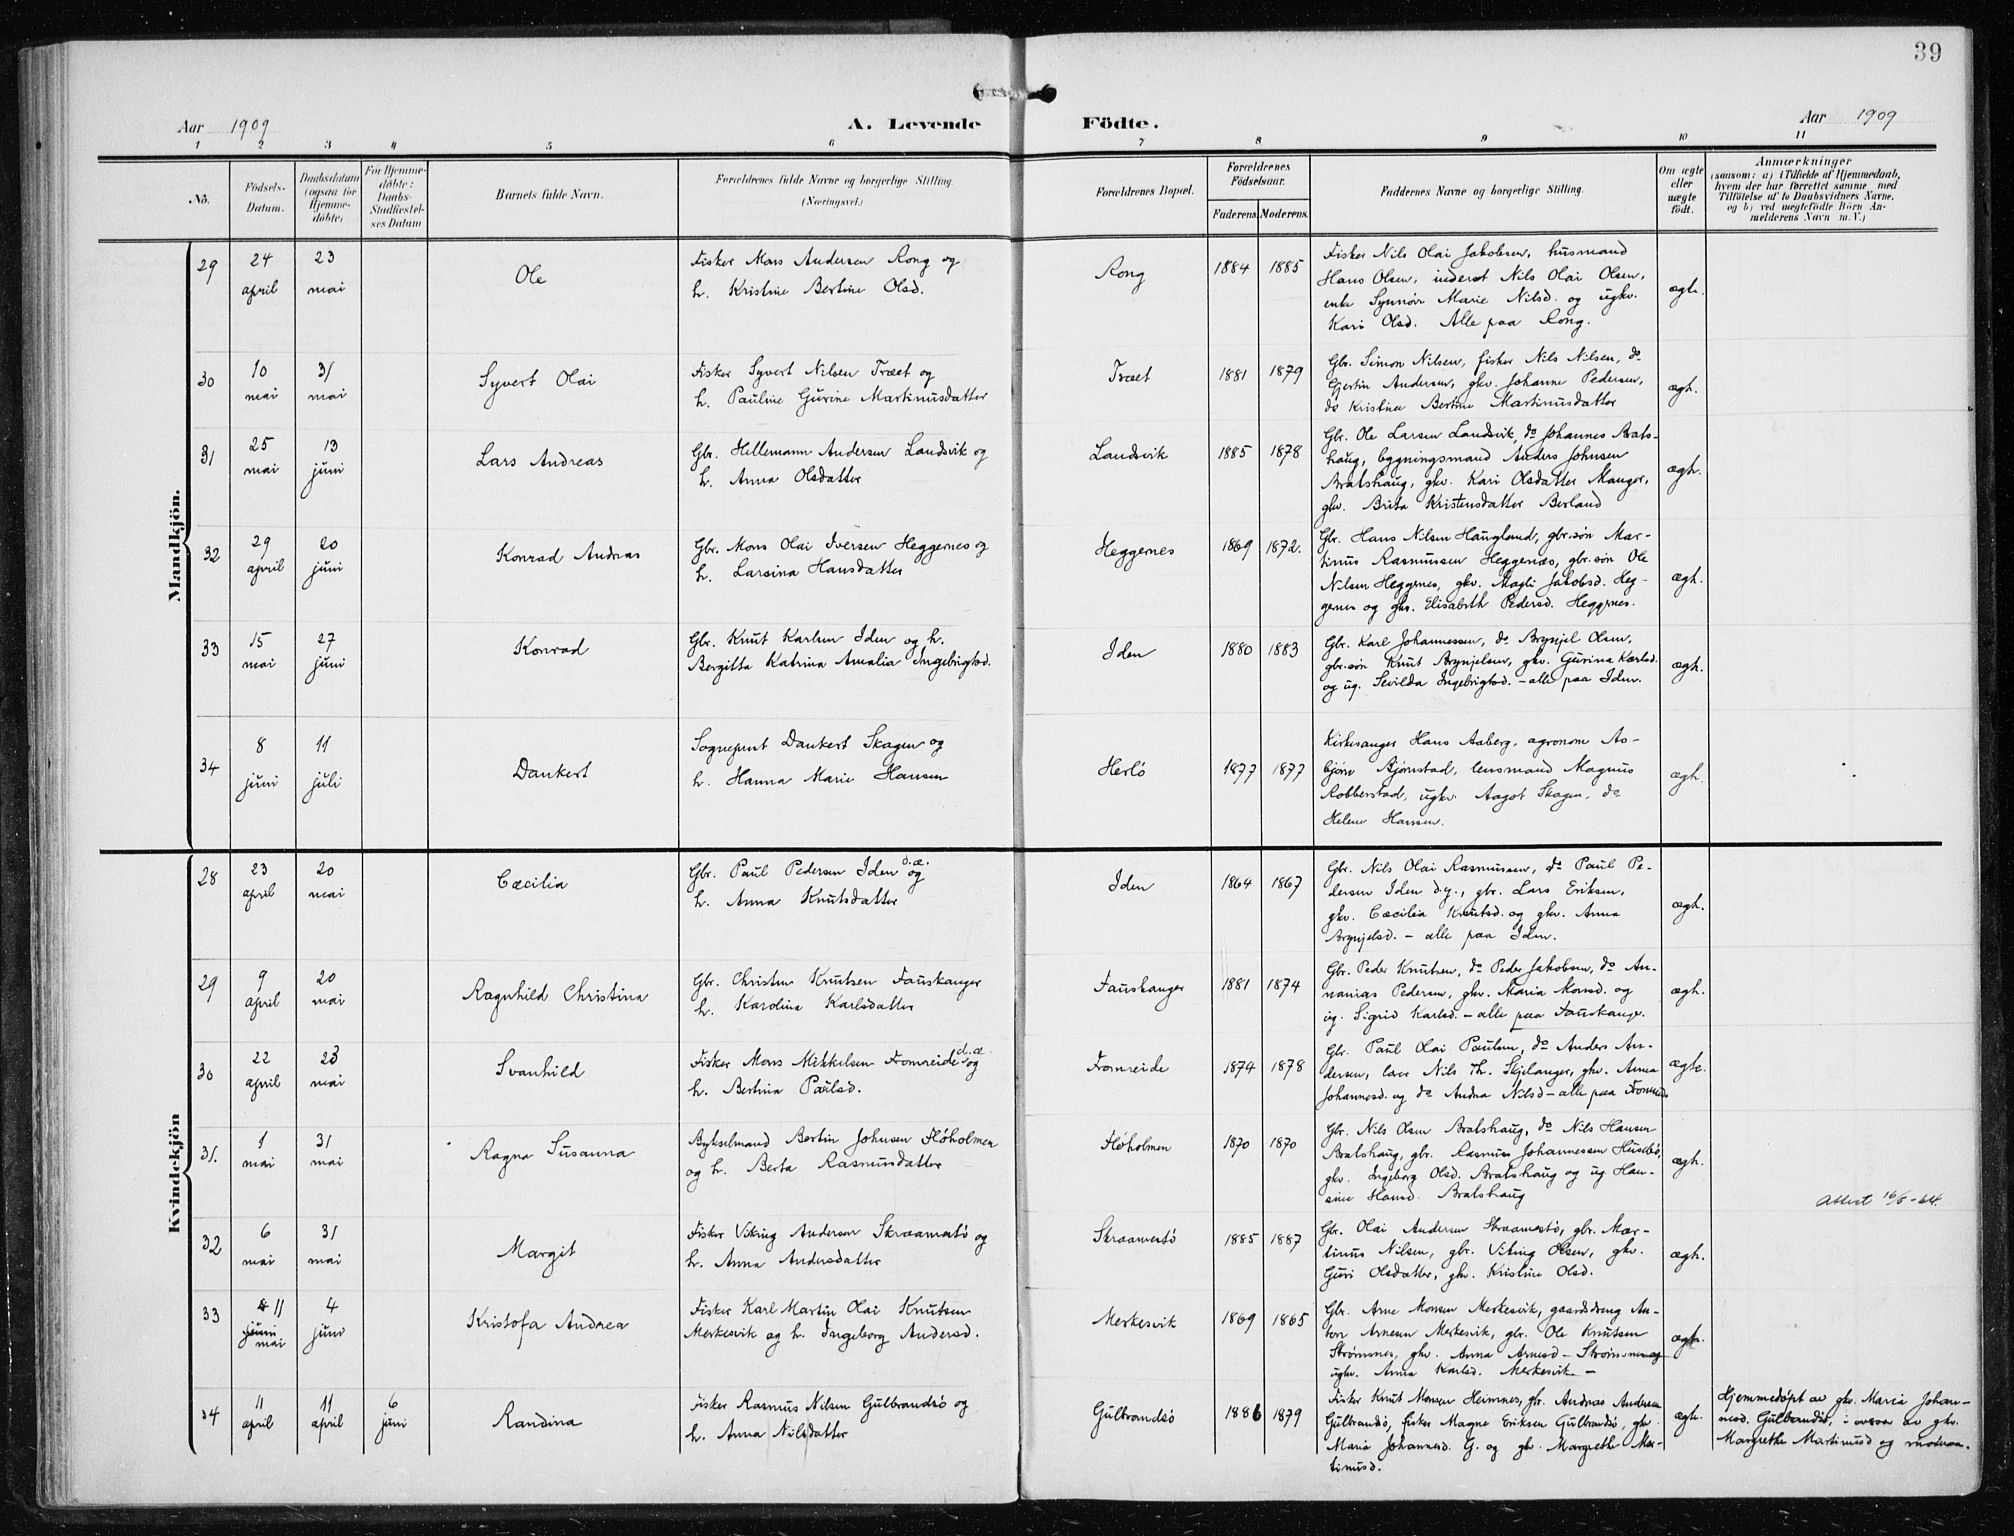 39
Aar 1909
A. Levende Födte.
Aar 1909
1 2 3 4 5 6 7 8 9 10 11
No.
Födsels-Datum.
Daabsdatum (ogsaa for Hjemme-döbte)
For Hjemme-döbte: Daabs-Stadfæstel-ses Datum
Barnets fulde Navn.
Forældrenes fulde Navne og borgerlige Stilling. (Næringsvei.)
Forældrenes Bopæl.
Forældrenes Födselsaar.
Faderens. Moderens.
Faddernes Navne og borgerlige Stilling.
Om ægte eller uægte födt.
Anmærkninger
(saasom: a) i Tilfælde af Hjemmedaab,
hvem der har forrettet samme, med
Tilföielse af to Daabsvidners Navne,
og b) ved uægtefödte Börn An-
melderens Navn m.V.)
Mandkjön.
29
24 april
23 mai
Ole
Fisker Mons Andersen Rong og
h. Kristine Bertine Olsd.
Rong
1884 1885
Fisker Nils Olai Jakobsen, husmand
Hans Olsen, inderst Nils Olai Olsen,
enke Synnöv Marie Nilsd. og ugkv.
Kari Olsd. Alle paa Rong.
ægte.
30
10 mai
31 mai
Syvert Olai
Fisker Syvert Nilsen Træet og
h. Pauline Gurine Martinusdatter
Træet
1881 1879
Gbr. Simon Nilsen, fisker Nils Nilsen, do
Gjertin Andersen, gkv. Johanne Pedersen,
do Kristine Bertine Martinusdatter
ægt.
31
25 mai
13 juni
Lars Andreas
Gbr. Hellemann Andersen Landsvik og
h. Anna Olsdatter
Landsvik
1885 1878
Gbr. Ole Larsen Landsvik, do Johannes Brats-
haug, bygningsmand Anders Johnsen
Bratshaug, gkv. Kari Olsdatter Manger,
gkv. Brita Kristensdatter Berland
ægt.
32
29 april
20 juni
Konrad Andreas
Gbr. Mons Olai Iversen Heggernes og
h. Larsina Hansdatter
Heggernes
1869 1872.
Gbr. Hans Nilsen Haugland, gbr.søn Mar-
tinus Rasmussen Heggernæs, gbr.søn Ole
Nilsen Heggernes, gkv. Magli Jakobsd. Heg-
gernes og gkv. Elisabeth Pedersd. Heggernes.
ægt.
33
15 mai
27 juni
Konrad
Gbr. Knut Karlsen Iden og h.
Bergitta Katrina Amalia Ingebrigtsd.
Iden
1880 1883
Gbr. Karl Johannessen, do Brynjel Olsen,
gbr.søn Knut Brynjelsen, gkv. Gurina Karlsd.
og ug. Sevilda Ingebrigtsd. – alle paa Iden.
ægt.
34
8 juni
11 juli
Dankert
Sogneprest Dankert Skagen og
h. Hanna Marie Hansen
Herlö
1877 1877
Kirkesanger Hans Aaberg, agronom As-
björn Bjørnstad, lensmand Magnus
Robberstad, ugkv. Aagot Skagen, do
Helene Hansen.
ægt.
Kvindekjön
28
23 april
20 mai
Cæcilia
Gbr. Paul Pedersen Iden d.æ. og
h. Anna Knutsdatter
Iden
1864 1867
Gbr. Nils Olai Rasmussen, do Paul Pe-
dersen Iden d.y., gbr. Lars Eriksen,
gkv. Cæcilia Knutsd. og gkv. Anna
Brynjelsd. – alle paa Iden.
ægt.
29
9 april
20 mai
Ragnhild Christina
Gbr. Christen Knutsen Fauskanger
h. Karolina Karlsdatter
Fauskanger
1881 1874
Gbr. Peder Knutsen, do Peder Jakobsen, do An-
nanias Pedersen, gkv. Maria Monsd. og
ug. Sigrid Karlsd. – alle paa Fauskange.
ægt.
30
22 april
23 mai
Svanhild
Fisker Mons Mikkelsen Fromreide d.æ. og
h. Bertina Paulsd.
Fromreide
1874 1878
Gbr. Paul Olai Paulsen, do Anders An-
dersen, lærer Nils Th. Skjelanger, gkv. Anna
Johannesd. og do Andrea Nilsd – alle paa Fromreide
ægte.
31.
1 mai
31 mai
Ragna Susanna
Bykselmand Bertin Johnsen Flöholmen
og h. Berta Rasmusdatter
Flöholmen
1870 1870
Gbr. Nils Olsen Bratshaug, do Nils Hansen
Bratshaug, gbr. Rasmus Johannessen Husebö,
gkv. Ingeborg Olsd. Bratshaug og ug. Han-
sine Hansd. Bratshaug
ægt.
Attest 16/8 - 64.
32
6 mai
31 mai
Margit
Fisker Viking Andersen Skraamestö og
h. Anna Andersdatter
Skraamestö
1885 1887
Gbr. Olai Andersen Skraamestö, gbr. Mar-
tinus Nilsen, gbr. Viking Olsen, gkv.
Guri Olsdatter, gkv. Kristine Olsd.
ægt.
33
11 juni mai
4 juni
Kristofa Andrea
Fisker Karl Martin Olai Knutsen
Merkesvik og h. Ingeborg Andersd.
Merkesvik
1869 1865
Gbr. Arne Monsen Merkesvik, gaardsdreng An-
ton Arnesen Merkesvik, gbr. Ole Knutsen
Strømsnes, gkv. Anna Arnesd – Strømsnes og
ugkv. Anna Karlsd. Merkesvik –
ægt.
34
11 april
11 april
6 juni
Randina
Fisker Rasmus Nilsen Gulbrandsö og
h. Anna Nilsdatter
Gulbrandsö
1886 1879
Fisker Knut Monsen Heimnes, gbr. Andreas Andersen
Gulbrandsö, fisker Magne Eriksen Gulbrandsö, gkv.
Maria Johannesd. G. og gkv. Margrethe Mar-
tinusd.
ægt.
Hjemmedøpt av gkv. Maria Johan-
nesd. Gulbrandsö, i overvær av gkv.
Margrethe Martinusd og moderen.